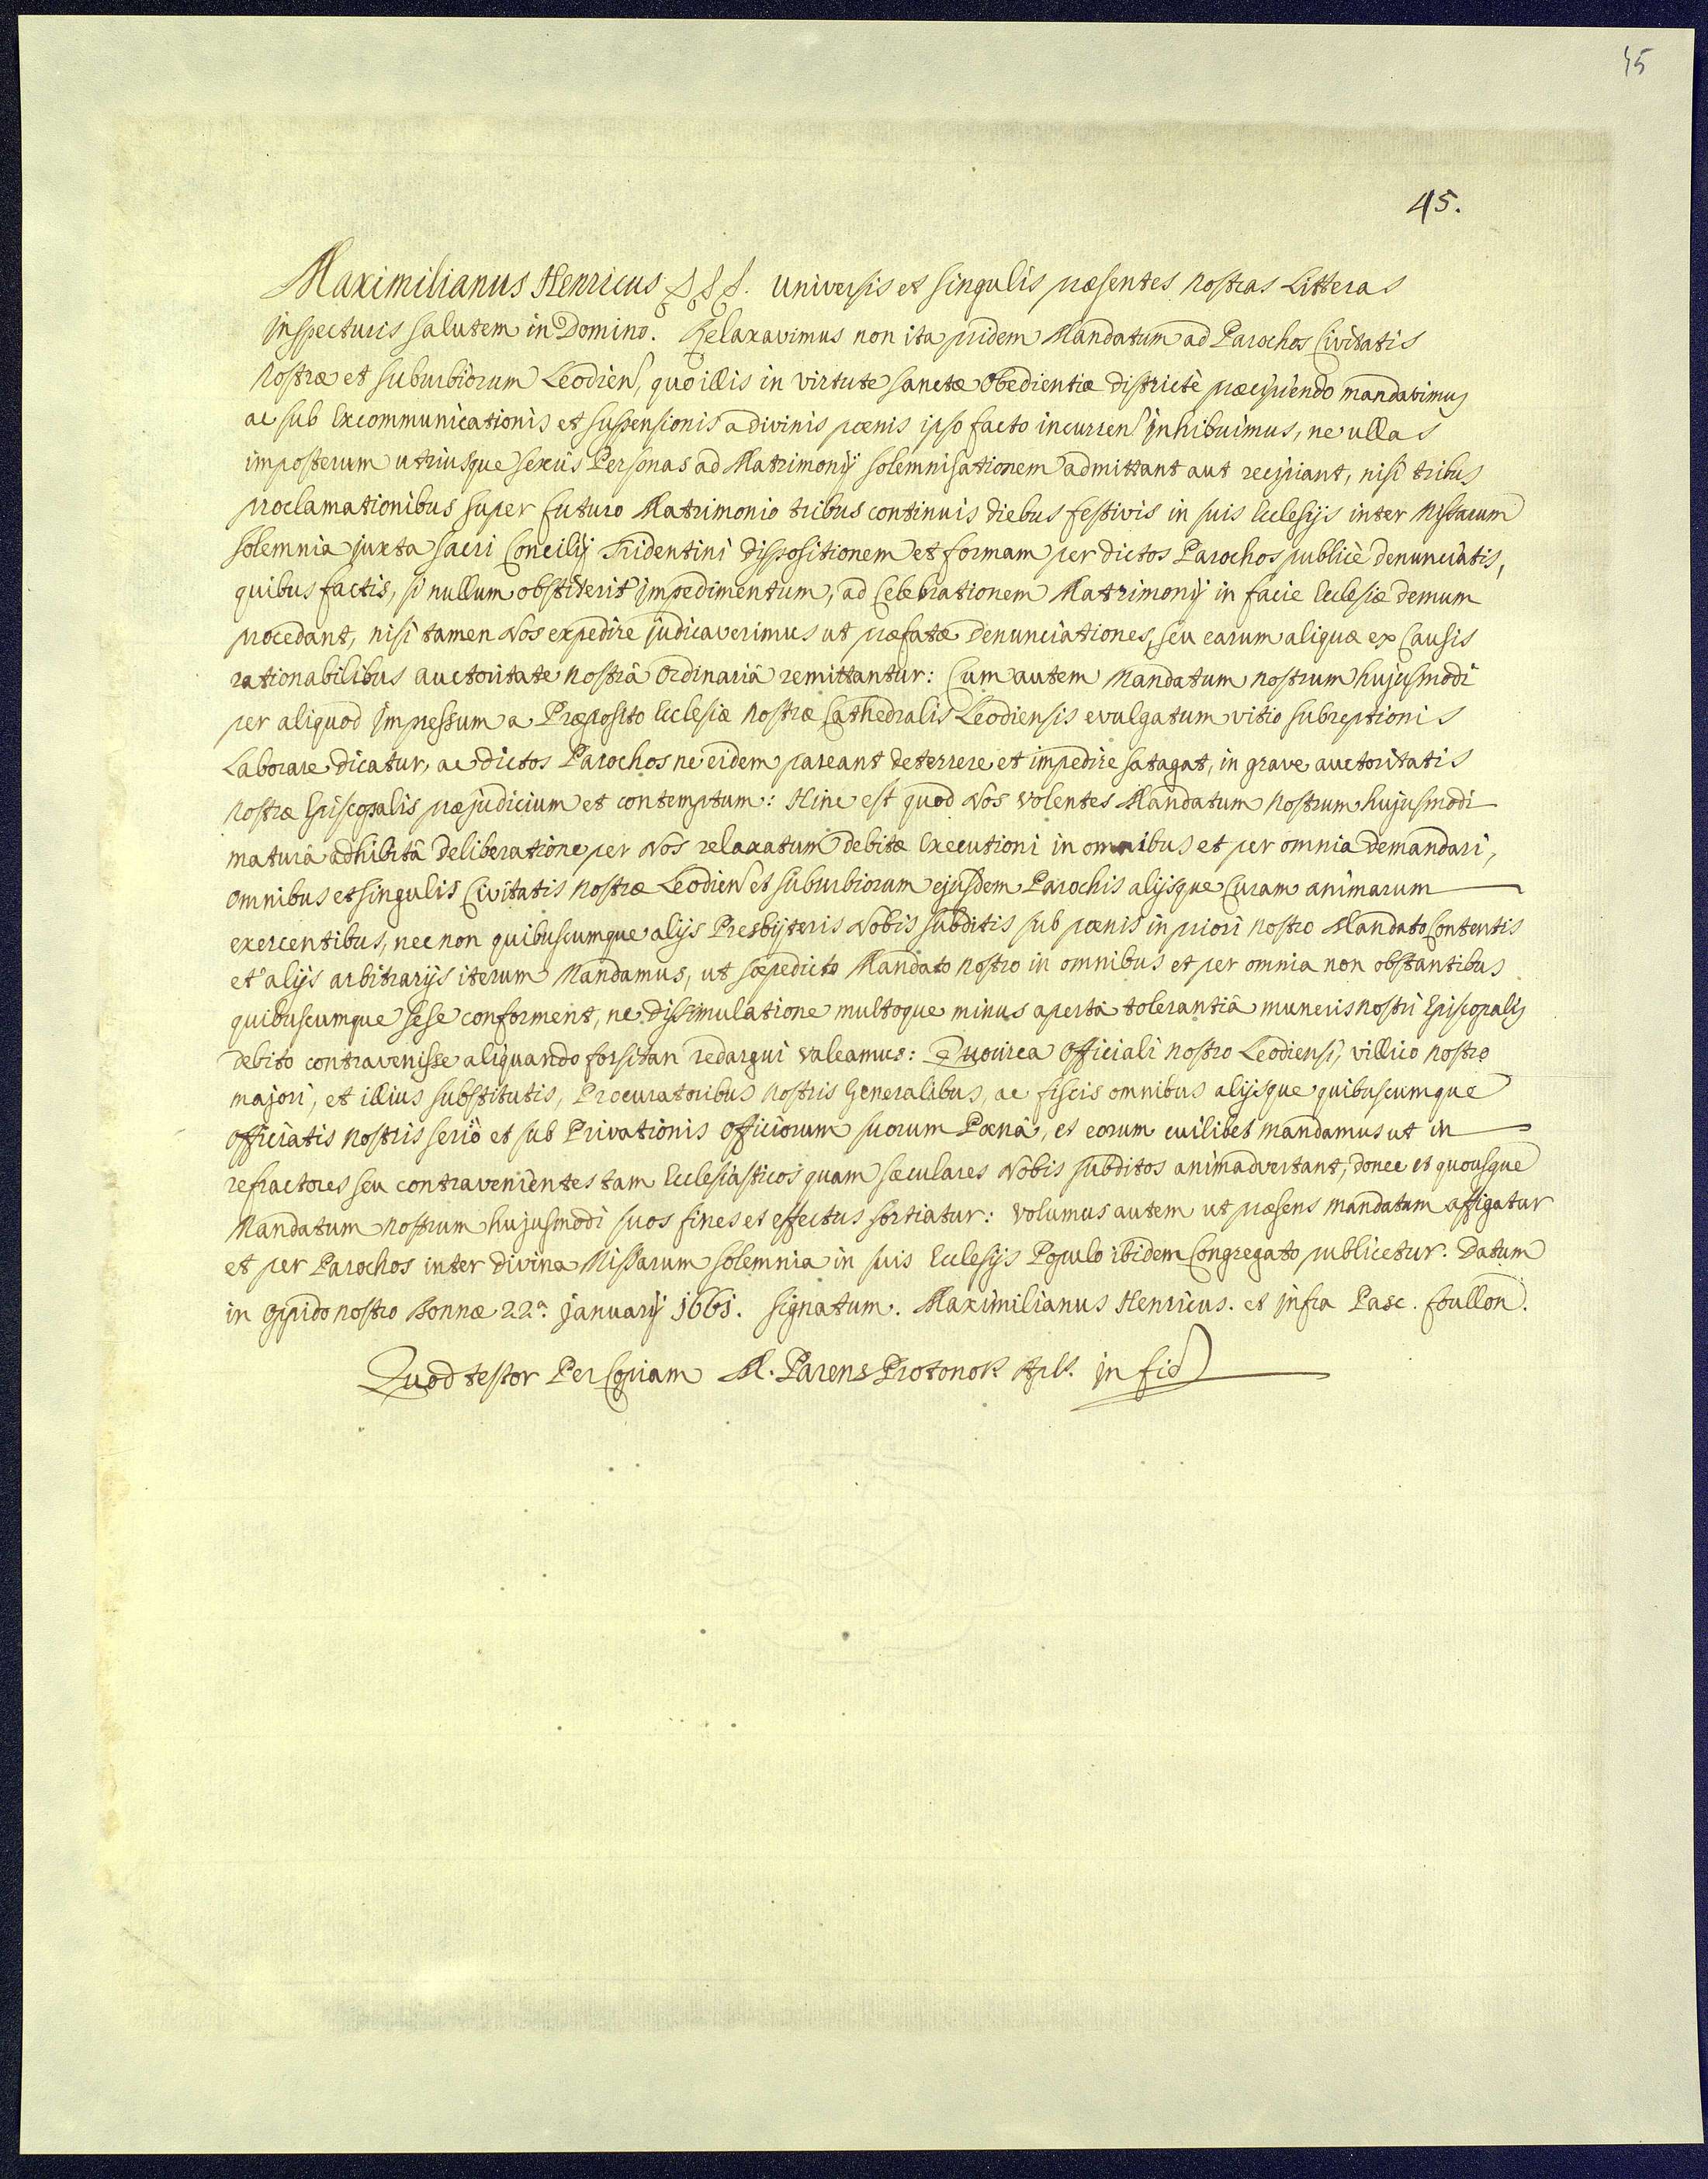 45
45.
Maximilianus Henricus &c &c &c. Universis et singulis præsentes nostras Litteras
inspecturis salutem in Domino. Relaxavimus non ita pridem Mandatum ad Parochos Civitatis
nostræ et suburbiorum Leodien, quo illis in virtute sanctæ Obedientiæ districtè præcipiendo mandavimus
ac sub Excommunicationis et suspensionis a divinis pœnis ipso facto incurren inhibuimus, ne ullas
imposterum utriusque sexûs Personas ad Matrimonij solemnisationem admittant aut recipiant, nisi tribus
proclamationibus super futuro Matrimonio tribus continuis diebus festivis in suis Ecclesijs inter Missarum
solemnia juxta sacri Concilij Tridentini dispositionem et formam per dictos Parochos publicè denunciatis,
quibus factis, si nullum obstiterit impedimentum, ad Celebrationem Matrimonij in facie Ecclesiæ demum
procedant, nisi tamen Nos expedire judicaverimus ut præfatæ denunciationes, seu earum aliquæ ex Causis
rationabilibus auctoritate nostrâ Ordinariâ remittantur: Cum autem Mandatum nostrum hujusmodi
per aliquod Impressum a Præposito Ecclesiæ nostræ Cathedralis Leodiensis evulgatum vitio subreptionis
Laborare dicatur, ac dictos Parochos ne eidem pareant deterrere et impedire satagat, in grave auctoritatis
nostræ Episcopalis præjudicium et contemptum: Hinc est quod Nos volentes Mandatum nostrum hujusmodi
maturâ adhibitâ deliberatione per Nos relaxatum debitæ Executioni in omnibus et per omnia demandari,
omnibus et singulis Civitatis nostræ Leodien et suburbiorum ejusdem Parochis alijsque Curam animarum
exercentibus, nec non quibuscumque alijs Presbijteris Nobis subditis sub pœnis in priori nostro Mandato Contentis
et alijs arbitrarijs iterum Mandamus, ut sæpedicto Mandato nostro in omnibus et per omnia non obstantibus
quibuscumque sese conforment, ne dissimulatione multoque minus apertâ tolerantiâ muneris nostri Episcopalis
debito contravenisse aliquando forsitan redargui valeamus: Quocirca Officiali nostro Leodiensi, villico nostro
majori, et illius substitutis, Procuratoribus nostris Generalibus, ac fiscis omnibus alijsque quibuscumque
officiatis nostris seriò et sub Privationis Officiorum suorum Pœnâ, et eorum cuilibet mandamus ut in
refractores seu contravenientes tam Ecclesiasticos quam sæculares Nobis subditos animadvertant, donec et quousque
Mandatum nostrum hujusmodi suos fines et effectus sortiatur: volumus autem ut præsens mandatum affigatur
et per Parochos inter divina Missarum solemnia in suis Ecclesijs Populo ibidem Congregato publicetur. Datum
in oppido nostro Bonnæ 22ª. januarij 1661. signatum. Maximilianus Henricus. et infra Pasc. foullon.
Quod testor Per Copiam M. Parens Protonot. in fid